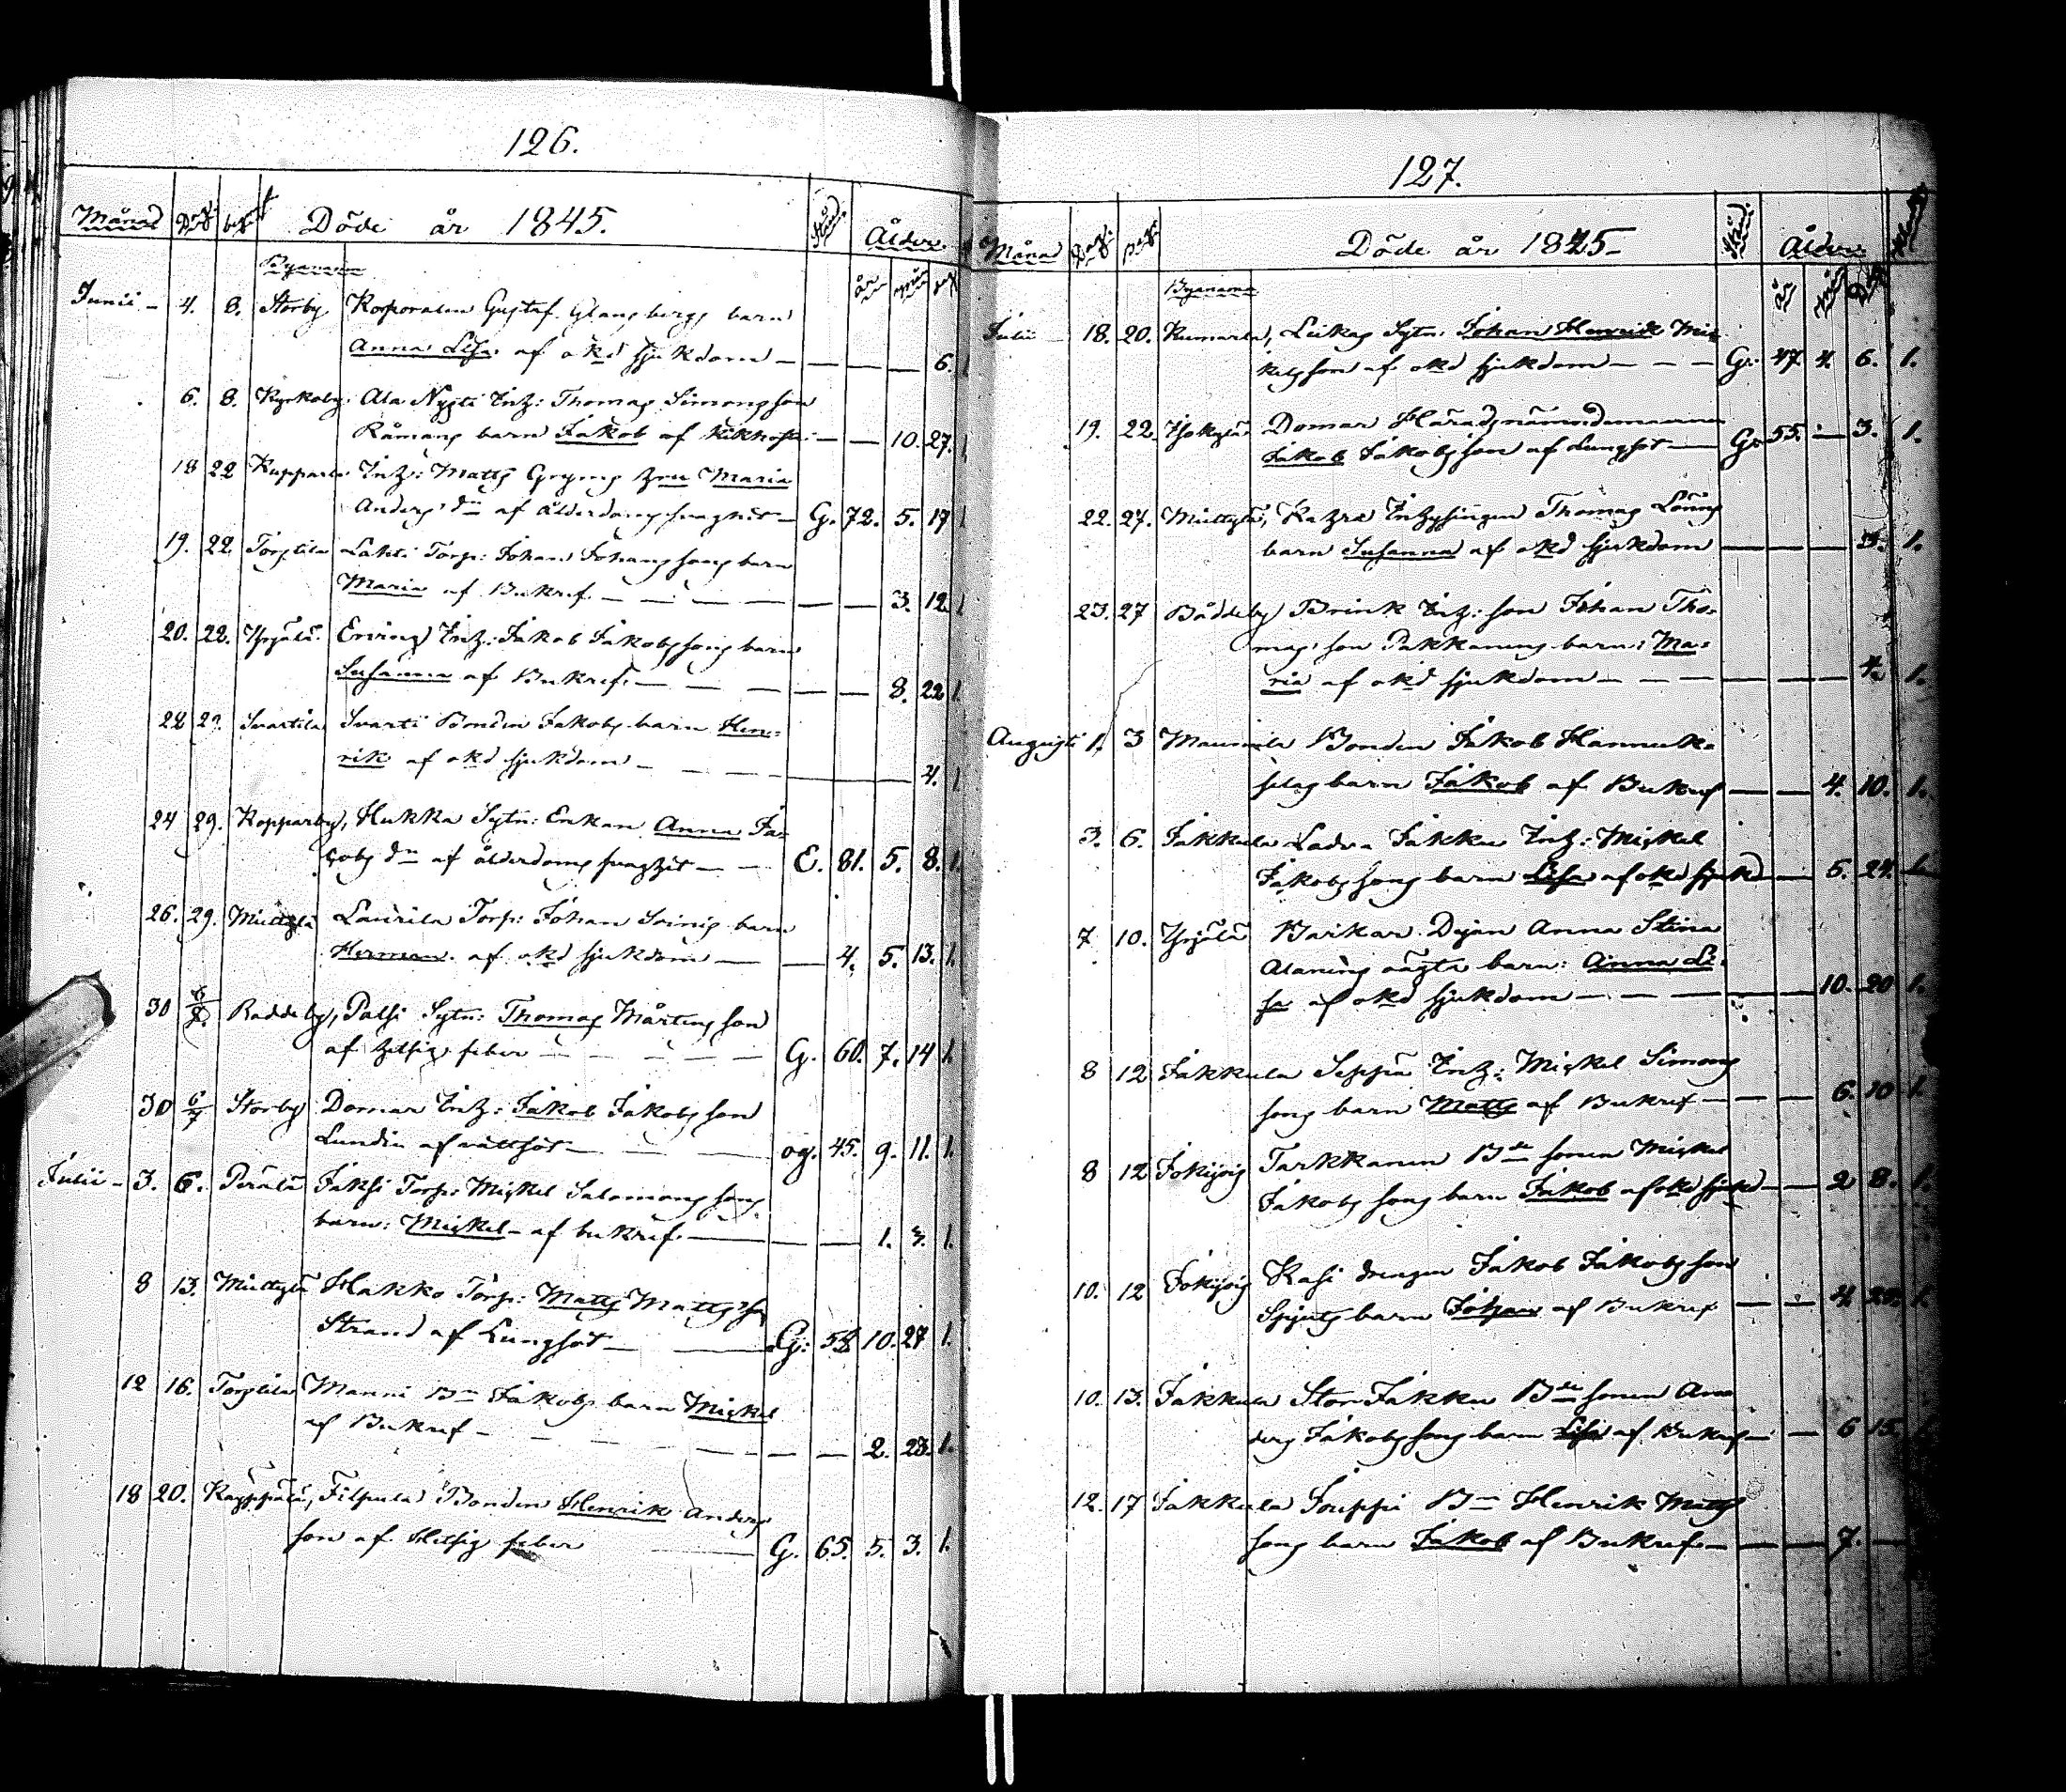 126.
Månad Dag. beg. Döde år 1845. Stånd. Ålder.
Byarne år mån dag
Junii - 4. 8. Storby Korporalen Gustaf Glansbergs barn
Anna Lisa af okd sjukdom — — — — 6. 1
6. 8. Kyrkoby: Ala Nygti Inh: Thomas Simonsson
Råmans barn Jakob af Kikhosta — — 10. 27. 1
18 22 Kupparla Inh: Matts Gryms hru Maria
Anders dn af ålderdoms svaghet — G. 72. 5. 17 1
19. 22. Torstila Lahti Torp: Johan Johanssons barn
Maria af Bukref — — — — 3. 12. 1
20. 22. Yrjälä Ervings Inh: Jakob Jakobssons barn
Susanna af Bukref. — — — 8. 22 1.
22 29. Svartila Svarti Bonden Jakobs barn Hen-
rik af okd sjukdom — — — 4. 1
24 29. Kopparby, Hukka Sytn: Enkan Anna Ja-
cobs dn af ålderdoms svaghet — — E. 81. 5. 8. 1.
26. 29. Muttylä Laurila Torp: Johan Soinis barn
Herman af okd sjukdom — — 4. 5. 13. 1.
30 6/7. Raddeby, Palsi Sytn: Thomas Mårtensson
af hetsig feber — — — — G. 60. 7. 14 1.
30 6/7 Storby Domar Inh: Jakob Jakobsson
Lundin af vattsot — — — og. 45. 9. 11. 1.
Julii - 3. 6. Perälä Jaksi Torp: Mickel Salomonssons
barn: Mickel - af bukref. — — — 1. 3. 1.
8 13. Muttylä Hakko Torp: Matts Matts'son
Strand af Lungsot — — G: 58 10. 27 1.
12 16. Torstila Manni Bn Jakobs barn Mickel
af Bukref - — — — — 2. 23. 1.
18 20. Kayppälä, Filpula Bonden Henrik Anders
son af Hetsig feber — G. 65. 5. 3. 1.
127.
Månad Dag. Beg. Döde år 1845 - Stånd. Ålder
Byanamn år mån Dag
Julii - 18. 20. Kumarla, Liikas Sytn: Johan Henrik Mic-
kelsson af okd sjukdom — — — G: 47 4. 6. 1.
19. 22. Yokylä Domar Häradsnämndemannen
Jakob Jakobsson af Lungsot — G. 55. — 3. 1.
22. 27. Muttylä, Kazra Inhysingen Thomas Lönns
barn Susanna af okd sjukdom — — — 3. 1.
23. 27 Båddeby Brink Inh: son Johan Tho-
mas'son Pakkanens barn: Ma-
ria af okd sjukdom — — — — — 4. 1.
Augusti 1. 3 Maunula Bonden Jakob Hannuk-
selas barn Jakob af Bukref — — 4. 10. 1.
3. 6. Jakkula Ladva Jakku Inh: Mickel
Jakobssons barn Lisa af okd sjukd — — 5. 24. 1.
7 10. Yrjälä Karikas Pigan Anna Stina
Alanens oägta barn: Anna Li-
sa af okd sjukdom — — — — 10. 20 1.
8 12 Jakkula Seppä Inh: Mickel Simons
sons barn Matts af Bukref — — — 6. 10 1.
8 12 Jokisvis Tarkkanen Bde sonen Mickel
Jakobs sons barn Jakob af okd sjukd — — 2 8. 1.
10. 12 Jokisvis Kasi drengen Jakob Jakobsson
Spjuts barn Johan af Bukref — — 4. 20. 1.
10. 13. Jakkula Stor Jakku Bde sonen An-
ders Jakobssons barn Lisa af Bukref — — 6 15.
12. 17 Jakkula Jouppi Bn Henrik Matts
sons barn Jakob af Bukref. — — — 7. —